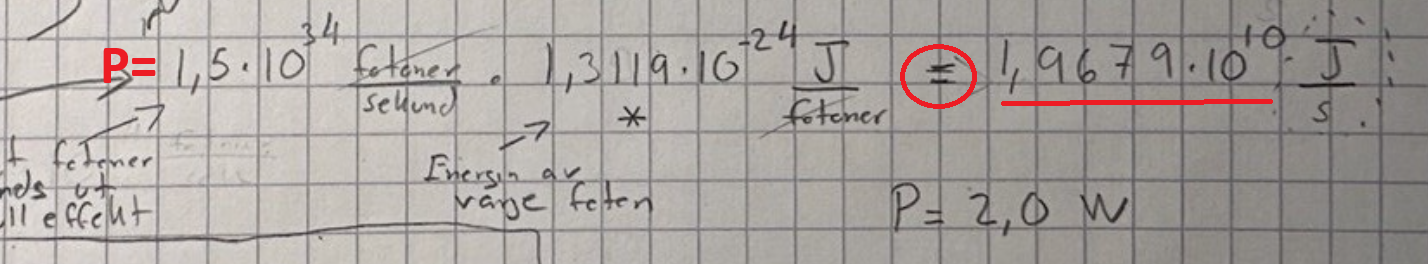 P= 1,5·10³⁴ fotoner/sekund · 1,3119·10⁻²⁴ J/fotoner = 1,9679·10¹⁰ · J/s
*
t fotoner
nds ut
ll effekt
Energin av
varje foton
P= 2,0 W